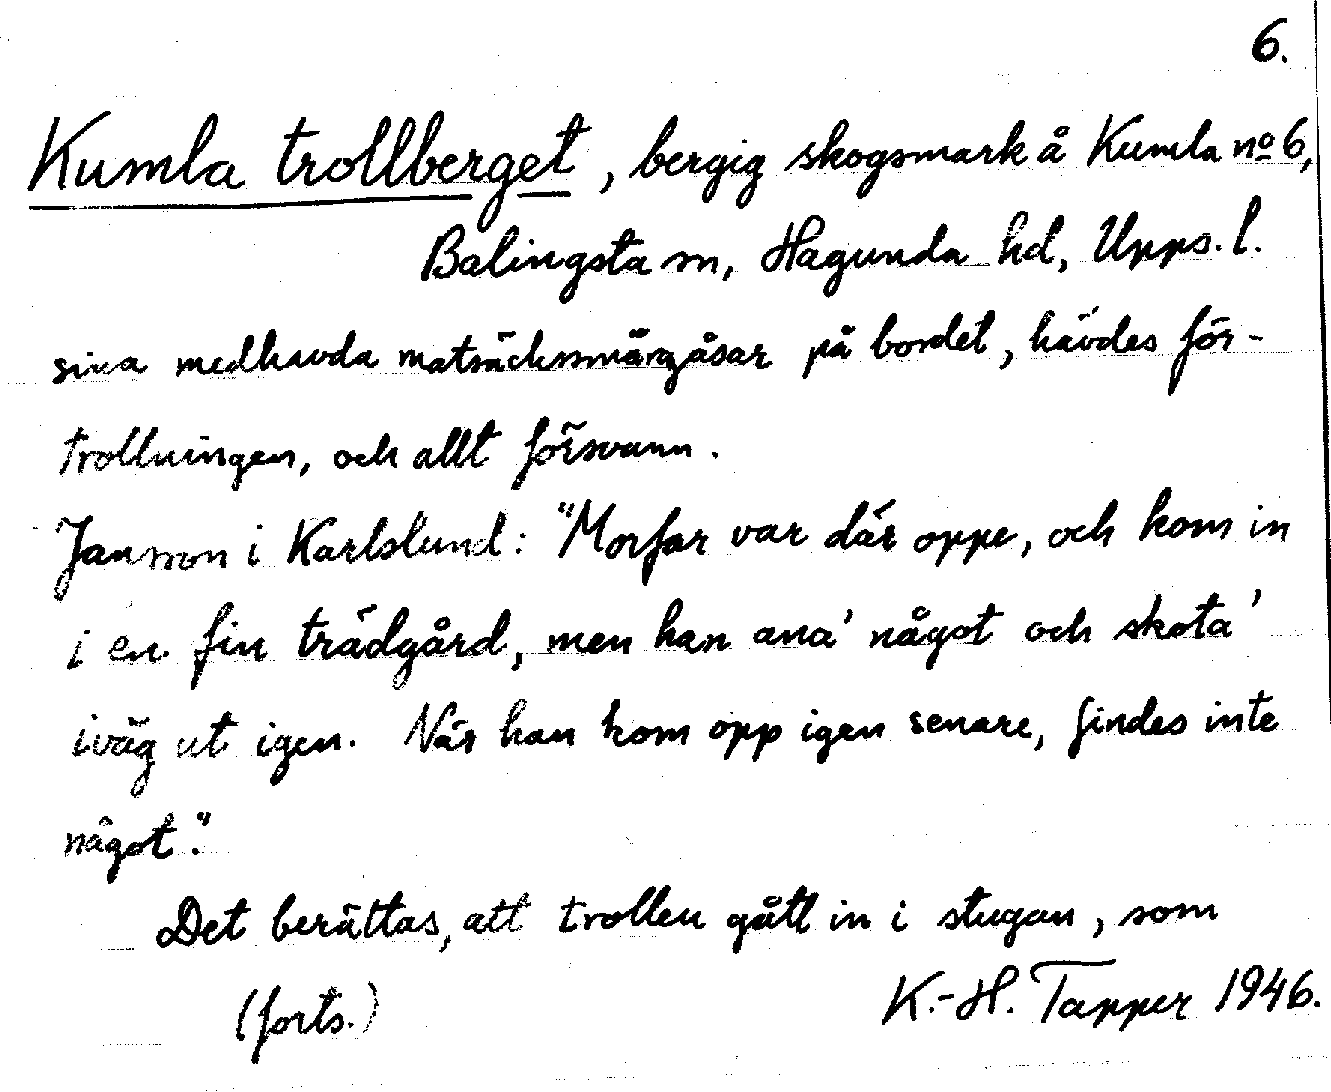 6.
Kumla trollberget, bergig skogsmark å Kumla nº 6,
Balingsta sn, Hagunda hd, Upps. l.
sina medhavda matsäcksmörgåsar på bordet, hävdes för-
trollningen, och allt försvann.
Jansson i Karlslund: "Morfar var där oppe, och kom in
i en fin trädgård, men han ana' något och skota'
iväg ut igen. När han kom opp igen senare, findes inte
något."
Det berättas, att trollen gått in i stugan, som
(forts.) K.-H. Tapper 1946.